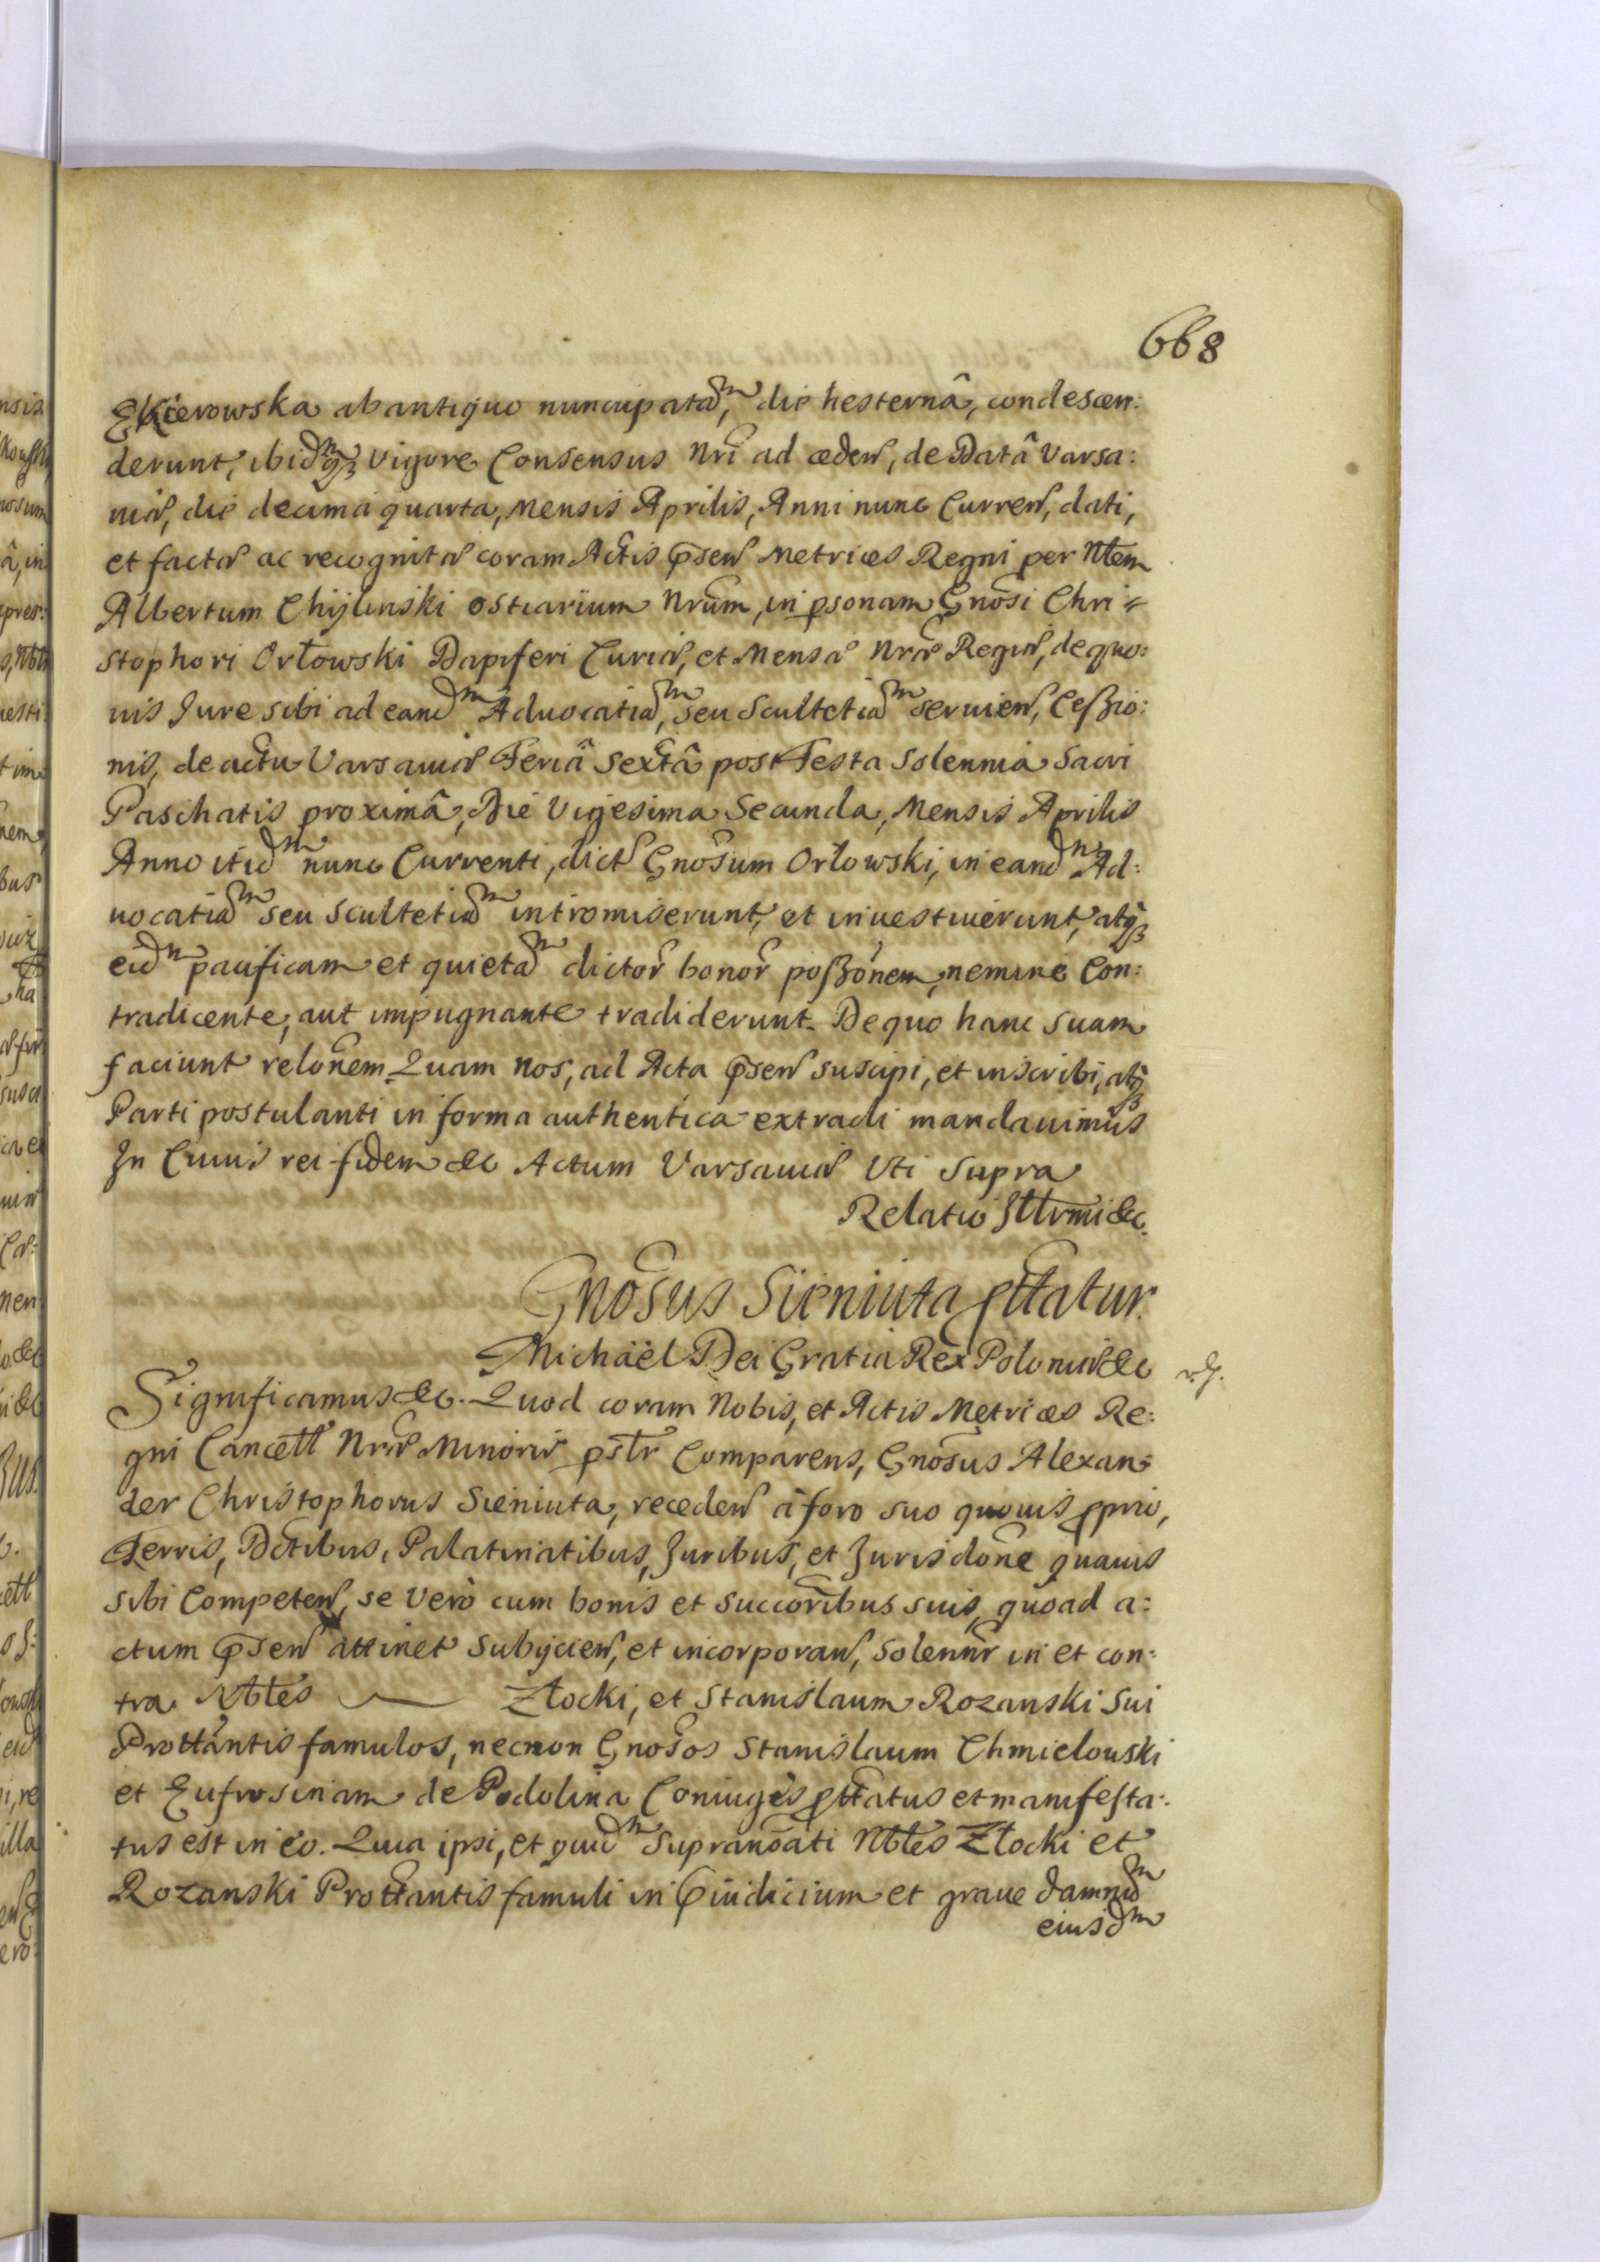 668
Ekierowska ab antiquo nuncupatam, die hesternâ, condescen:
derunt, ibidmq3 vigore Consensus Nri ad æden, de Datâ Varsa:
uiæ, die decima quarta, Mensis Aprilis, Anni nunc Curren, dati,
et factæ ac recognitæ coram Actis psen Metrices Regni per Nblem
Albertum Chijlinski ostiarium Nrum, in psonam Gnosi Chri=
stophori Orłowski Dapiferi Curiæ, et Mensæ Nræ Regiæ, de quo:
uis Jure sibi ad eandm Aduocatiam, seu Scultetiam seruien, Ceßio:
nis, de actu Varsauiæ Feriâ Sextâ post Festa Solennia Sacri
Paschatis proximâ, Die Vigesima Secunda, Mensis Aprilis
Anno itidm nunc Currenti, dict Gnosum Orłowski, in eandm Ad:
uocatiam seu Scultetiam intromiserunt, et inuestiuerunt, atq3
eidm pacificam et quietam dictor bonor poßonem, nemine Con:
tradicente, aut impugnante tradiderunt. De quo hanc suam
faciunt relonem Quam nos, ad Acta psen suscipi, et inscribi, atq3
Parti postulanti in forma authentica extradi mandauimus
In Cuius rei fidem &c Actum Varsauiæ Uti Supra
Relatio Illrmi &c.
Gnosus Sieniuta pttatur.
Michäel Dei Gratia Rex Poloniæ &c
Significamus &c. Quod coram Nobis, et Actis Metrices Re:
gni Cancell Nræ Minoris pstr Comparens, Gnosus Alexan=
der Christophorus Sieniuta, receden à foro suo quouis pprio,
Terris, Dctibus, Palatinatibus, Juribus, et Jurisdone quauis
sibi Competen, se verò cum bonis et succoribus suis, quoad a:
ctum psen attinet subijcien, et incorporan, solennr in et con:
tra Nbles Złocki, et Stanislaum Rozanski Sui
Prottantis famulos, necnon Gnosos Stanislaum Chmielouski
et Eufrosinam de Podolina Coniuges pttatus et manifesta:
tus est in eo. Quia ipsi, et quidm Supranoati Nbles Złocki et
Rozanski Prottantis famuli in piudicium et graue damnum
eiusdm